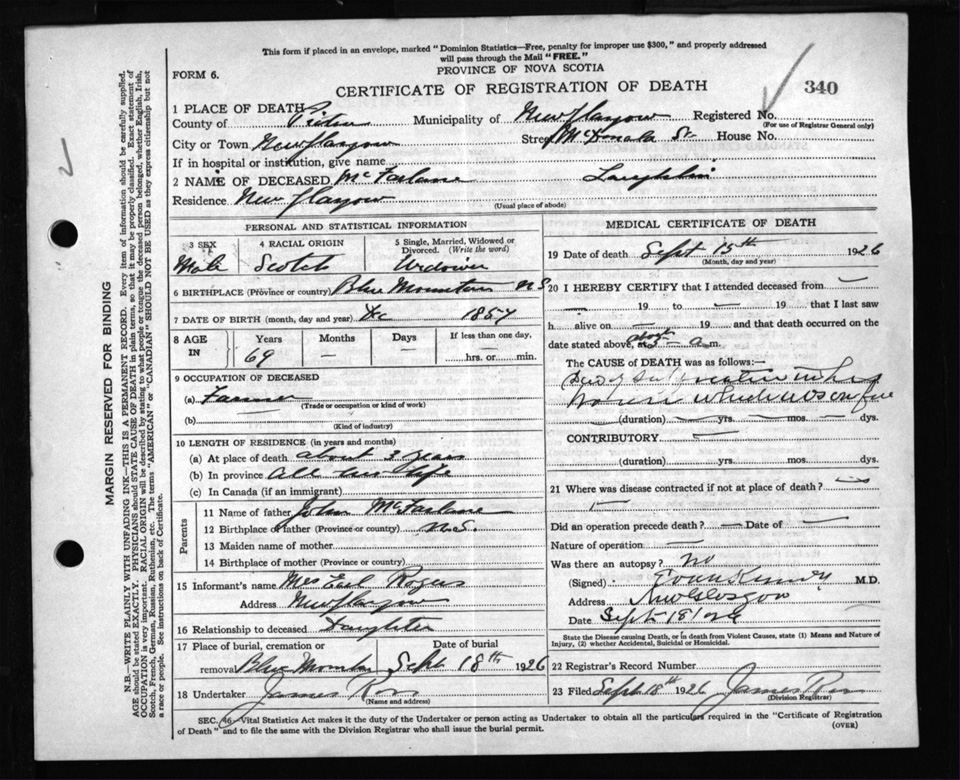 This form if placed in an envelope, marked "Dominion Statistics—Free, penalty for improper use $300," and properly addressed
will pass through the Mail "FREE."
PROVINCE OF NOVA SCOTIA
FORM 6.
CERTIFICATE OF REGISTRATION OF DEATH
340
1 PLACE OF DEATH
County of Pictou Municipality of New Glasgow Registered No.
(For use of Registrar General only)
City or Town New Glasgow Street McDonald St. House No.
If in hospital or institution, give name
2 NAME OF DECEASED McFarlane Laughlin
Residence New Glasgow
(Usual place of abode)
PERSONAL AND STATISTICAL INFORMATION
3 SEX 4 RACIAL ORIGIN 5 Single, Married, Widowed or
Divorced. (Write the word)
Male Scotch Widower
6 BIRTHPLACE (Province or country) Blue Mountain N S.
7 DATE OF BIRTH (month, day and year) 1857
8 AGE IN Years Months Days If less than one day,
69 — — hrs. or min.
9 OCCUPATION OF DECEASED
(a) Farmer
(Trade or occupation or kind of work)
(b)
(Kind of industry)
10 LENGTH OF RESIDENCE (in years and months)
(a) At place of death about 3 years
(b) In province All his life
(c) In Canada (if an immigrant)
Parents
11 Name of father John McFarlane
12 Birthplace of father (Province or country) N.S.
13 Maiden name of mother
14 Birthplace of mother (Province or country)
15 Informant's name Mrs Earl Rogers
Address New Glasgow
16 Relationship to deceased Daughter
17 Place of burial, cremation or Date of burial
removal Blue Mountain Sept 18th 1926
18 Undertaker James Ross
(Name and address)
MEDICAL CERTIFICATE OF DEATH
19 Date of death Sept 15th 1926
(Month, day and year)
20 I HEREBY CERTIFY that I attended deceased from —
— 19 to — 19 that I last saw
h alive on — 19 and that death occurred on the
date stated above, at a.m.
The CAUSE of DEATH was as follows:—
house which was on fire
(duration) yrs. mos. dys.
CONTRIBUTORY —
(duration) yrs. mos. dys.
21 Where was disease contracted if not at place of death?
Did an operation precede death? — Date of —
Nature of operation —
Was there an autopsy? no
(Signed) Evan Kennedy M.D.
Address New Glasgow
Date Sept 18/26
State the Disease causing Death, or in death from Violent Causes, state (1) Means and Nature of
Injury, (2) whether Accidental, Suicidal or Homicidal.
22 Registrar's Record Number
23 Filed Sept 18th 1926 James Ross
(Division Registrar)
SEC. 46, Vital Statistics Act makes it the duty of the Undertaker or person acting as Undertaker to obtain all the particulars required in the "Certificate of Registration
of Death" and to file the same with the Division Registrar who shall issue the burial permit. (OVER)
MARGIN RESERVED FOR BINDING
N.B.—WRITE PLAINLY WITH UNFADING INK—THIS IS A PERMANENT RECORD. Every item of information should be carefully supplied.
AGE should be stated EXACTLY. PHYSICIANS should STATE CAUSE OF DEATH in plain terms, so that it may be properly classified. Exact statement of
OCCUPATION is very important. RACIAL ORIGIN will be described by stating to what people or tongue the deceased person belonged, whether English, Irish,
Scotch, French, German, Russian, Ruthenian, etc. The terms "AMERICAN" or "CANADIAN" SHOULD NOT BE USED as they express citizenship but not
a race or people. See instructions on back of Certificate.